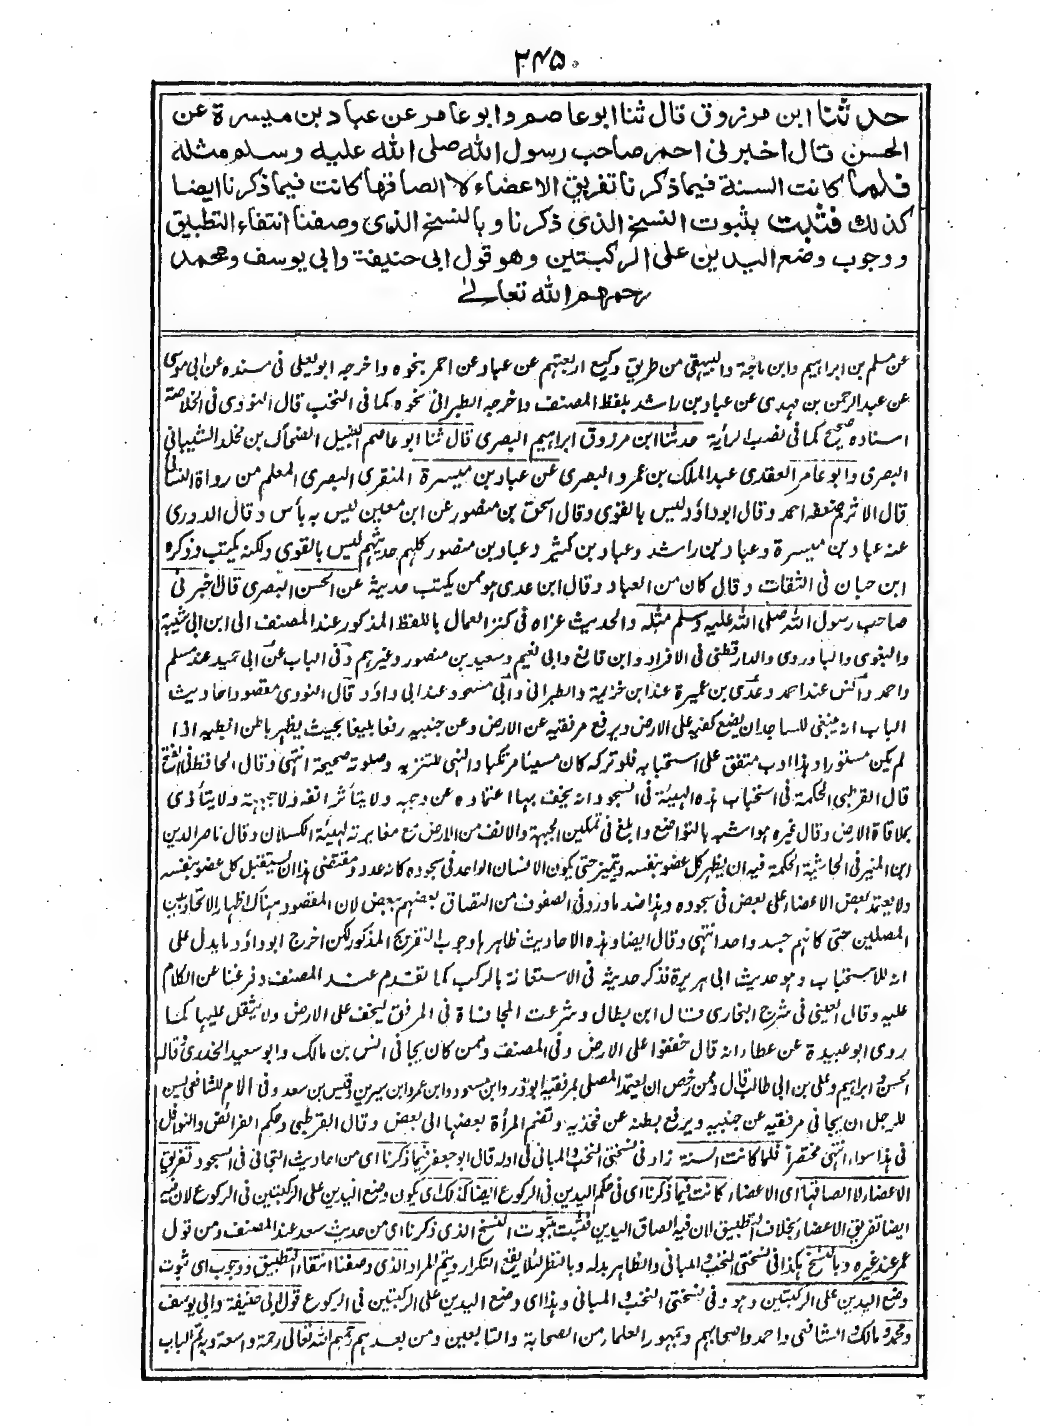 ٣٤٥
حدثنا ابن مرزوق قال ثنا ابو عاصم وابو عامر عن عباد بن ميسرة عن
الحسن قال اخبرنى احمر صاحب رسول الله صلى الله عليه وسلم مثله
فلما كانت السنة فيما ذكرنا تفريق الاعضاء لا الصاقها كانت فيما ذكرنا ايضا
كذلك فثبت بثبوت النسخ الذى ذكرنا وبالنسخ الذى وصفنا انتفاء التطبيق
ووجوب وضع اليدين على الركبتين وهو قول ابى حنيفة وابى يوسف ومحمد
رحمهم الله تعالى
عن مسلم بن ابراهيم وابن ماجة والبيهقى من طريق وكيع اربعتهم عن عباد عن احمر بنحوه واخرجه ابو يعلى فى مسنده عن ابى موسى
عن عبد الرحمن بن مهدى عن عباد بن راشد بلفظ المصنف واخرجه الطبرانى نحوه كما فى النخب قال النووى فى الخلاصة
اسناده صحيح كما فى نصب الراية حدثنا ابن مرزوق ابراهيم البصرى قال ثنا ابو عاصم النبيل الضحاك بن مخلد الشيبانى
البصرى وابو عامر العقدى عبد الملك بن عمرو البصرى عن عباد بن ميسرة المنقرى البصرى المعلم من رواة النسائى
قال الاثرم ضعفه احمد وقال ابو داؤد ليس بالقوى وقال اسحق بن منصور عن ابن معين ليس به بأس وقال الدورى
عنه عباد بن ميسرة وعباد بن راشد وعباد بن كثير وعباد بن منصور كلهم حديثهم ليس بالقوى ولكنه يكتب وذكره
ابن حبان فى الثقات وقال كان من العباد وقال ابن عدى هو ممن يكتب حديثه عن الحسن البصرى قال اخبرنى
صاحب رسول الله صلى الله عليه وسلم مثله والحديث عزاه فى كنز العمال باللفظ المذكور عند المصنف الى ابن ابى شيبة
والبغوى والباوردى والدارقطنى فى الافراد وابن قانع وابى نعيم وسعيد بن منصور وغيرهم وفى الباب عن ابى حميد عند مسلم
واحمد وانس عند احمد وعدى بن عميرة عند ابن خزيمة والطبرانى وابى مسعود عند ابى داؤد قال النووى مقصود احاديث
الباب انه ينبغى للساجد ان يضع كفيه على الارض ويرفع مرفقيه عن الارض وعن جنبيه رفعا بليغا بحيث يظهر باطن ابطيه اذا
لم يكن مستورا وهذا ادب متفق على استحبابه فلو تركه كان مسيئا مرتكبا والنهى للتنزيه وصلوته صحيحة انتهى وقال الحافظ فى الفتح
قال القرطبى الحكمة فى استحباب هذه الهيئة فى السجود انه يخف بها اعتماده عن وجهه ولا يتأثر انفه ولا جبهته ولا يتأذى
بملاقاة الارض وقال غيره هو اشبه بالتواضع وابلغ فى تمكين الجبهة والانف من الارض مع مغايرته لهيئة الكسلان وقال ناصر الدين
ابن المنير فى الحاشية الحكمة فيه ان يظهر كل عضو بنفسه ويتميز حتى يكون الانسان الواحد فى سجوده كانه عدد ومقتضى هذا ان يستقل كل عضو بنفسه
ولا يعتمد بعض الاعضاء على بعض فى سجوده وهذا ضد ما ورد فى الصفوف من التصاق بعضهم ببعض لان المقصود هناك اظهار الاتحاد بين
المصلين حتى كانهم جسد واحد انتهى وقال ايضا وهذه الاحاديث ظاهرها وجوب التفريج المذكور لكن اخرج ابو داؤد ما يدل على
انه للاستحباب وهو حديث ابى هريرة فذكر حديثه فى الاستعانة بالركب كما تقدم عند المصنف وفرغنا عن الكلام
عليه وقال العينى فى شرح البخارى قال ابن بطال وشرعت المجافاة فى المرفق ليخف على الارض ولا يثقل عليها كما
روى ابو عبيدة عن عطاء انه قال خففوا على الارض وفى المصنف وممن كان يجافى انس بن مالك وابو سعيد الخدرى وقاله
الحسن وابراهيم وعلى بن ابى طالب قال وممن رخص ان يعتمد المصلى بمرفقيه ابو ذر وابن مسعود وابن عمر وابن سيرين وقيس بن سعد وفى الام للشافعى يسن
للرجل ان يجافى مرفقيه عن جنبيه ويرفع بطنه عن فخذيه وتضم المرأة بعضها الى بعض وقال القرطبى وحكم الفرائض والنوافل
فى هذا سواء انتهى مختصرا فلما كانت السنة زاد فى نسختى النخب والمبانى فى اوله قال ابو جعفر فيما ذكرنا اى من احاديث التجافى فى السجود تفريق
الاعضاء لا الصاقها اى الاعضاء كانت فيما ذكرنا اى فى حكم اليدين فى الركوع ايضا كذلك اى يكون وضع اليدين على الركبتين فى الركوع لان فيه
ايضا تفريق الاعضاء بخلاف التطبيق لان فيه الصاق اليدين فثبت بثبوت النسخ الذى ذكرنا اى من حديث سعد عند المصنف ومن قول
عمر عند غيره وبالنسخ هكذا فى نسختى النخب والمبانى والظاهر بدله وبالنظر لئلا يقع التكرار ويتم المراد الذى وصفنا انتفاء التطبيق ووجوب اى ثبوت
وضع اليدين على الركبتين وهو فى نسختى النخب والمبانى وهذا اى وضع اليدين على الركبتين فى الركوع قول ابى حنيفة وابى يوسف
ومحمد ومالك والشافعى واحمد واصحابهم وجمهور العلماء من الصحابة والتابعين ومن بعدهم رحمهم الله تعالى رحمة واسعة وبه تم الباب